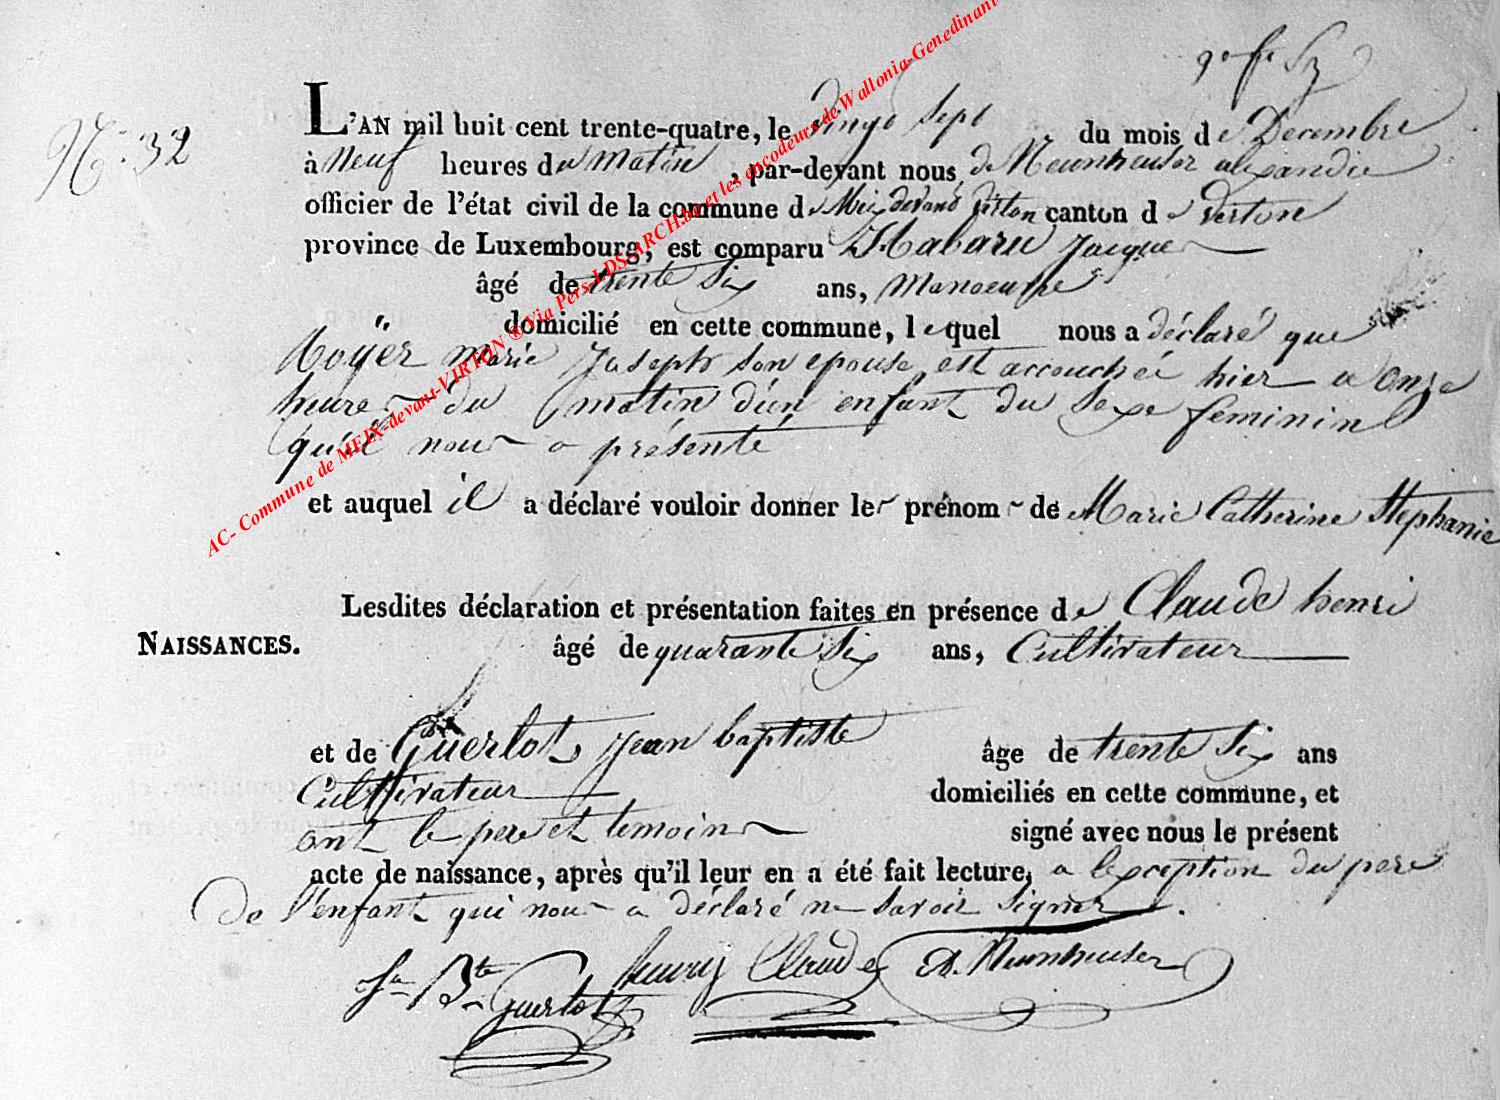 9e fe Sz
N.° 32
L'AN mil huit cent trente-quatre, le vingt sept du mois de Decembre
à Neuf heures du matin, par-devant nous de Neunheuser alexandre
officier de l'état civil de la commune de Meix devant Virton canton de virton
province de Luxembourg, est comparu Habaru Jacque
âgé de trente six ans, Manoeuvre
domicilié en cette commune, lequel nous a déclaré que
Noÿer marie Joseph son epouse est accouchée hier a onze
heure du matin d'un enfant du sexe feminin
qu'il nous a présenté
et auquel il a déclaré vouloir donner les prénoms de Marie Catherine Stephanie
Lesdites déclaration et présentation faites en présence de Claude henri
NAISSANCES. âgé de quarante six ans, Cultivateur
et de Guerlot, jean baptiste âge de trente six ans
Cultivateur domiciliés en cette commune, et
ont le pere et temoins signé avec nous le présent
acte de naissance, après qu'il leur en a été fait lecture, a l'exception du pere
de l'enfant qui nous a déclaré ne savoir signer.
Jn Bte Guerlot henry Claude A. Neunheuser
AC- Commune de MEIX-devant-VIRTON ® Via Pers-LDS-ARCH.be et les encodeurs de Wallonia-Genedinant